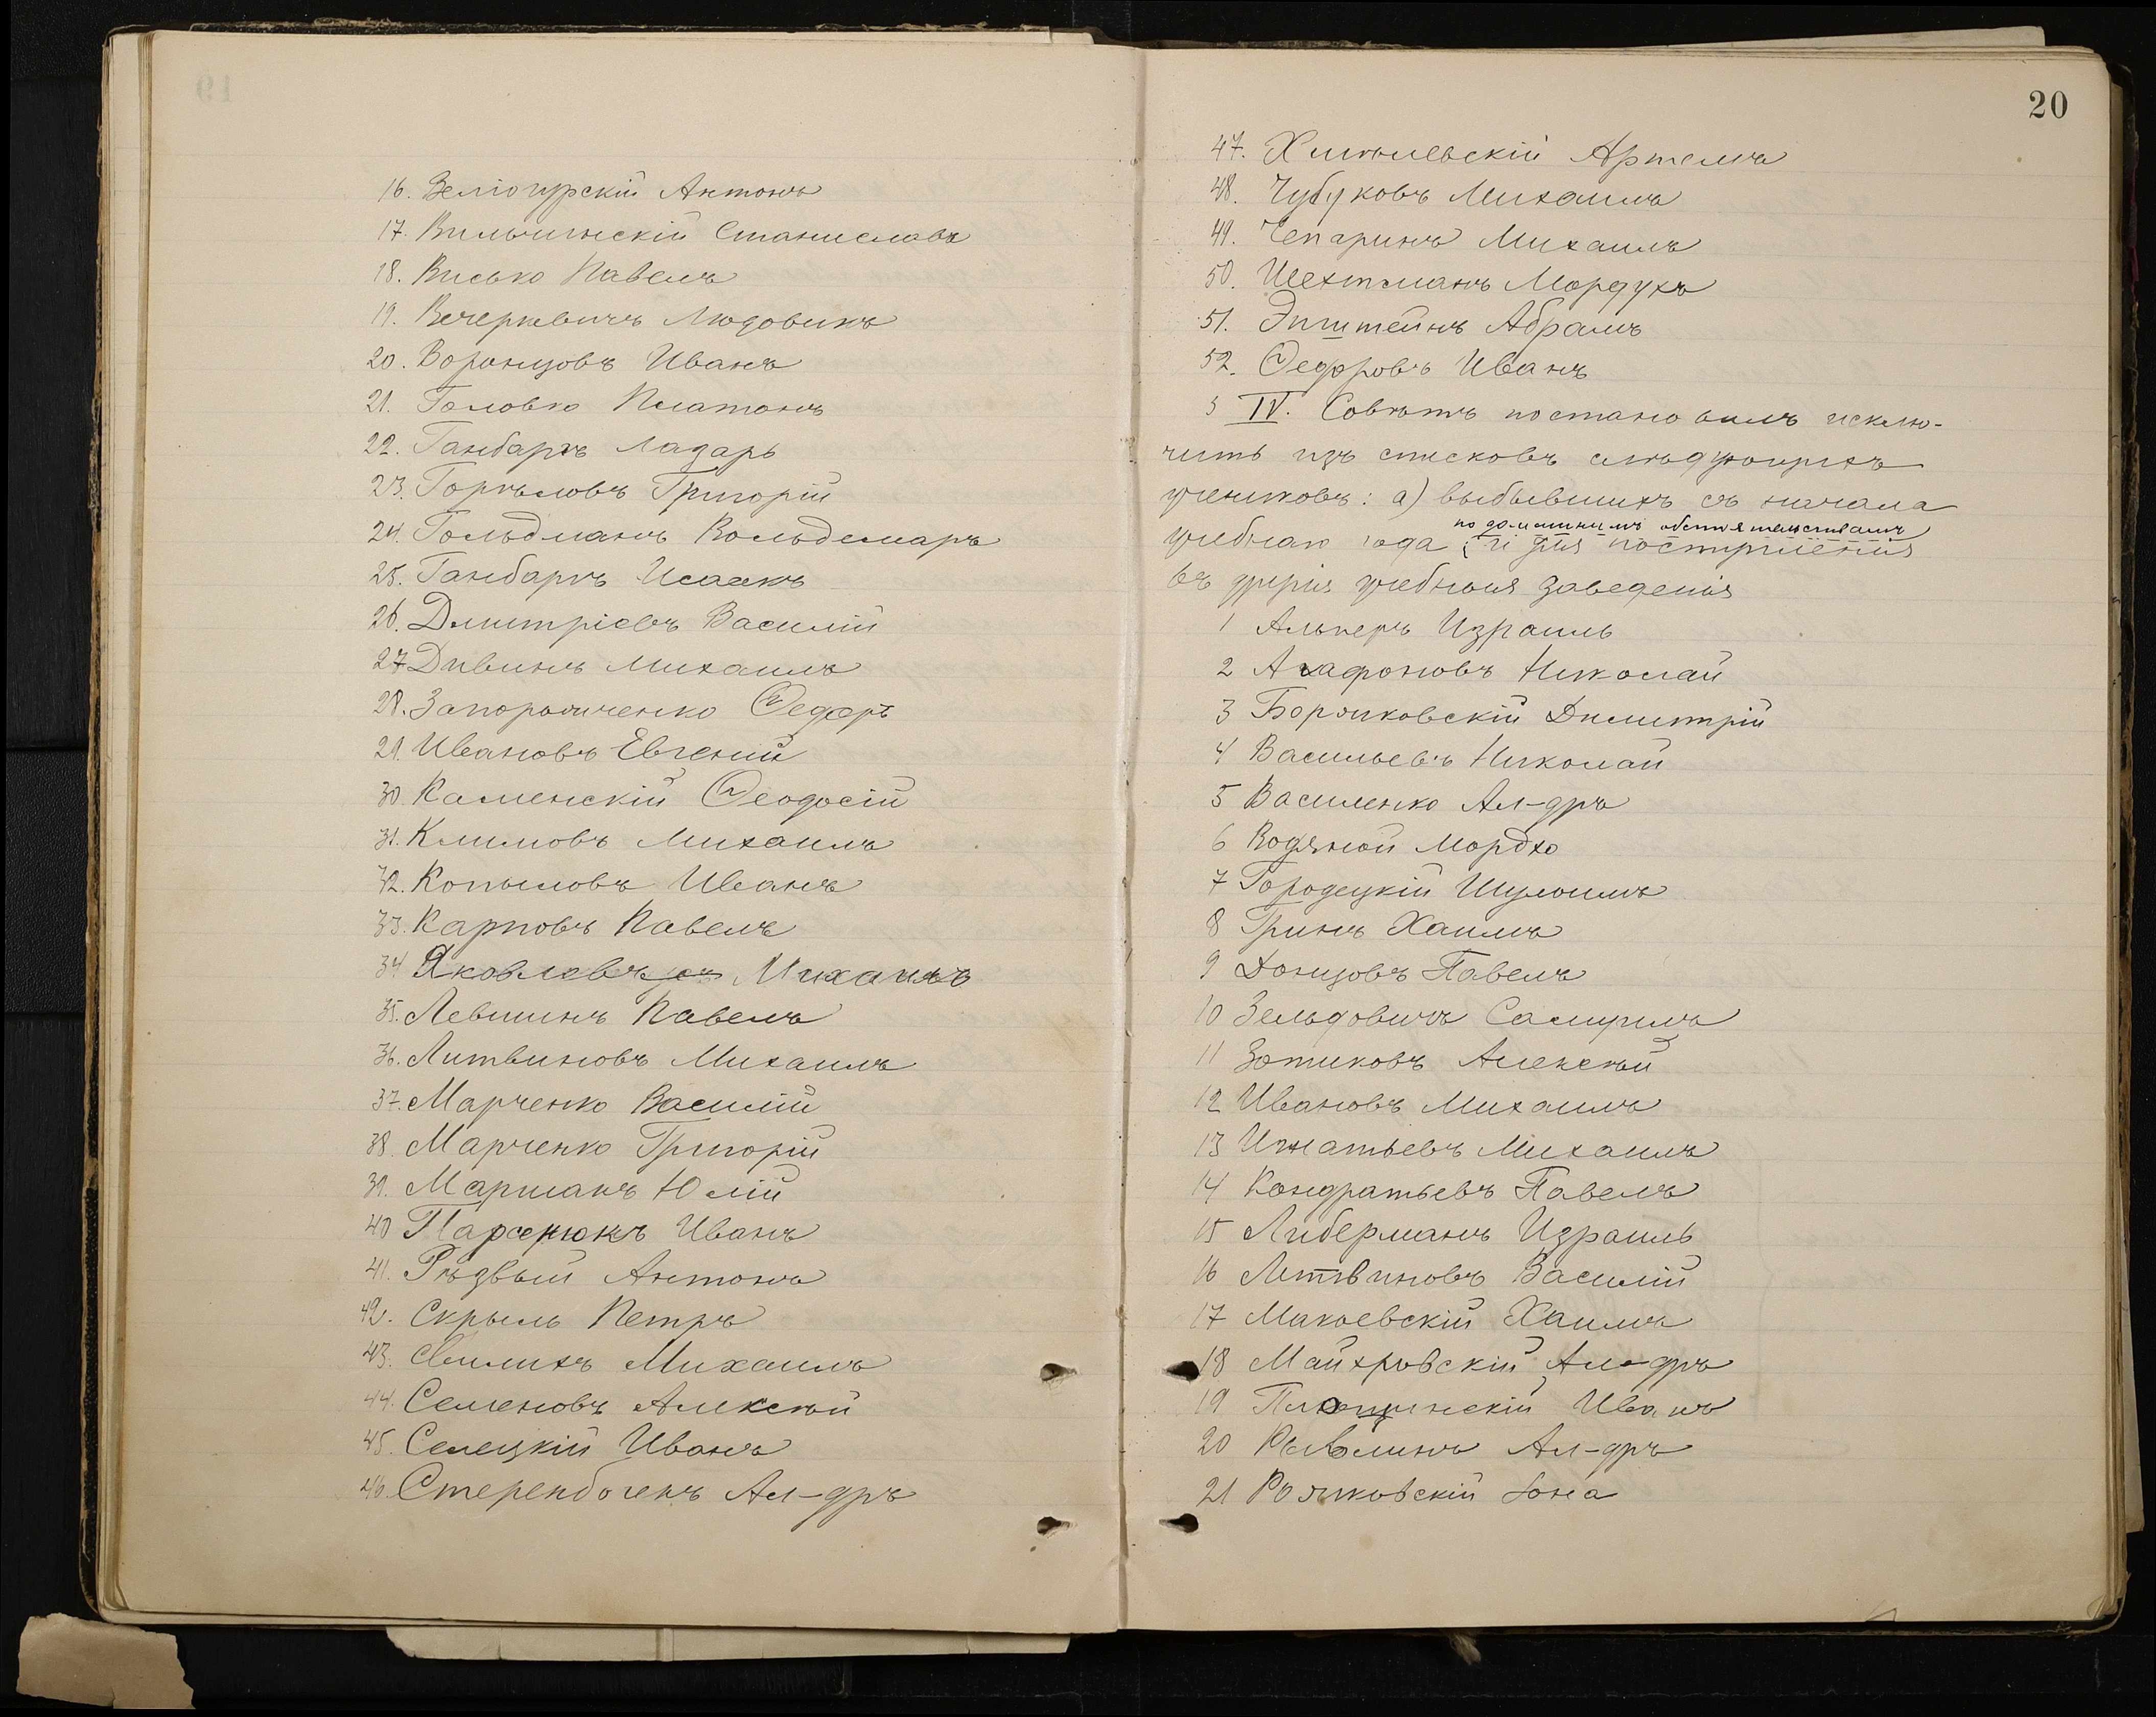 16. Веліогурскій Антонъ
17. Вильчинскій Станиславъ
18. Висько Павелъ
19. Вечеркевичъ Людовикъ
20. Воронцовъ Иванъ
21. Головко Платонъ
22. Ганбаргъ Лазарь
23. Горѣловъ Григорій
24. Гольдманъ Вольдемаръ
25. Ганбаргъ Исаакъ
26. Дмитріевъ Василій
27 Дивинъ Михаилъ
28. Запорожченко Ѳедоръ
29. Ивановъ Евгеній
30. Каменскій Ѳеодосій
31. Климовъ Михаилъ
32. Копыловъ Иванъ
33. Карповъ Павелъ
34 Яковлевъ Михаилъ
35. Левшинъ Павелъ
36. Литвиновъ Михаилъ
37. Марченко Василій
38. Марченко Григорій
39. Маршакъ Юлій
40 Парсенюкъ Иванъ
41. Рѣзвый Антонъ
42. Скрыль Петръ
43. Свилихъ Михаилъ
44. Семеновъ Алексѣй
45. Селецкій Иванъ
46. Стеренбогенъ Ал-дръ
20
47. Хмѣлевскій Артемъ
48. Чубуковъ Михаилъ
49. Чепаринъ Михаилъ
50. Шехтманъ Мордухъ
51. Эпштейнъ Абрамъ
52. Ѳедоровъ Иванъ
§ IV. Совѣтъ постановилъ исклю-
чить изъ списковъ слѣдующихъ
учениковъ: а) выбывшихъ съ начала
по домашнимъ обстоятельствамъ
учебнаго года и для поступленія
въ другія учебныя заведенія
1 Альперъ Израиль
2 Агафоновъ Николай
3 Боряковскій Дмитрій
4 Васильевъ Николай
5 Василенко Ал-дръ
6 Водяной Мордхо
7 Городецкій Шулимъ
8 Гринъ Хаимъ
9 Донцовъ Павелъ
10 Зельдовичъ Самуилъ
11 Зотиковъ Алексѣй
12 Ивановъ Михаилъ
13 Игнатьевъ Михаилъ
14 Кондратьевъ Павелъ
15 Либерманъ Израиль
16 Литвиновъ Василій
17 Макаевскій Хаимъ
18 Майхровскій Ал-дръ
19 Иванъ
20 Ривлинъ Ал-дръ
21 Іона